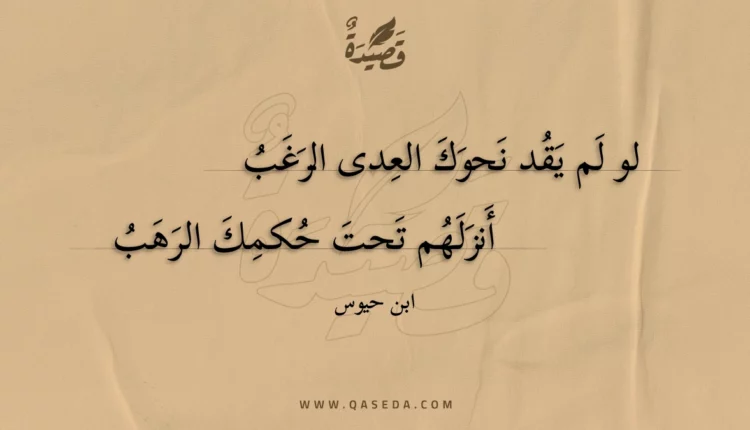 قَصِيْدَةٌ
لو لَم يَقُد نَحوَكَ العِدى الرَغَبُ
أَنزَلَهُم تَحتَ حُكمِكَ الرَهَبُ
ابن حيوس
WWW.QASEDA.COM